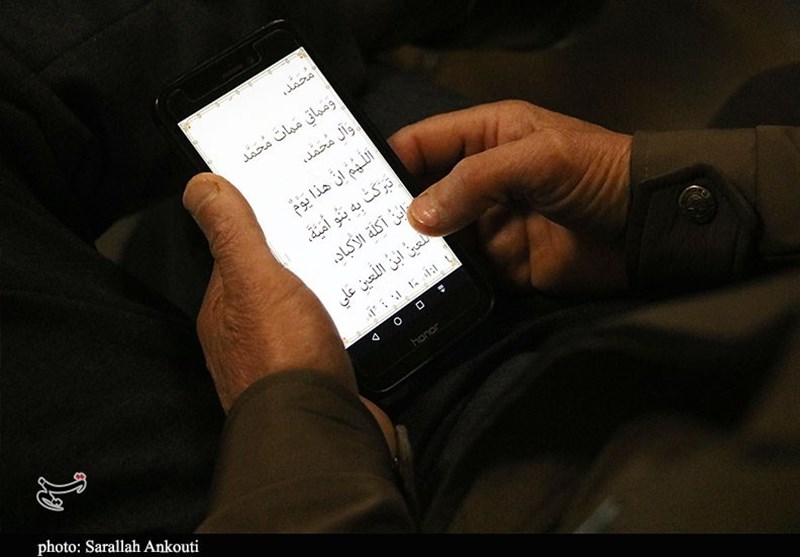 مُحَمَّد،
وَمَماتي مَماتَ مُحَمَّد
وَآلِ مُحَمَّد،
اللّهُمَّ اِنَّ هذا يَوْمٌ
تَبَرَّكَتْ بِهِ بَنُو اُمَيَّةَ،
وَابْنُ آكِلَةِ الْاَكْبادِ،
اللَّعينُ ابْنُ اللَّعينِ عَلي
honor
تسنیم
photo: Sarallah Ankouti